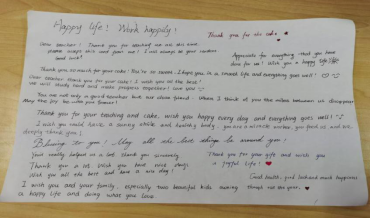 Happy life! Work happily!
Thank you for the cake.
Dear teacher! Thank you for teaching me all this time
please accept this and forget me! I will always be your student
Good luck!
Appreciate for everything that you have
done for us! Wish you a happy life
Thank you so much for your cake! You're so sweet. I hope you in a travel life and everything goes well!
Dear teacher thank you for your cake! I wish you all the best!
we will study hard and make progress together! Love you
You are not only a good teacher but our close friend. When I think of you the miles between us disappear
May the joy be with you forever!
Thank you for your teaching and cake, wish you happy every day and everything goes well!
I wish you could have a sunny smile and healthy body. you are a miracle worker, you feed us and we
deeply thank you!
Blessing for you! May all the nice things be around you!
Your really helped us a lot. thank you sincerely.
Thank you for your gift and wish you
a joyful life!
Thank you a lot. Wish you have nice days.
Wish you all the best and have a nice day!
Good health, good luck and much happiness
I wish you and your family, especially two beautiful kids during
a happy life and doing what you love
throughout the year.